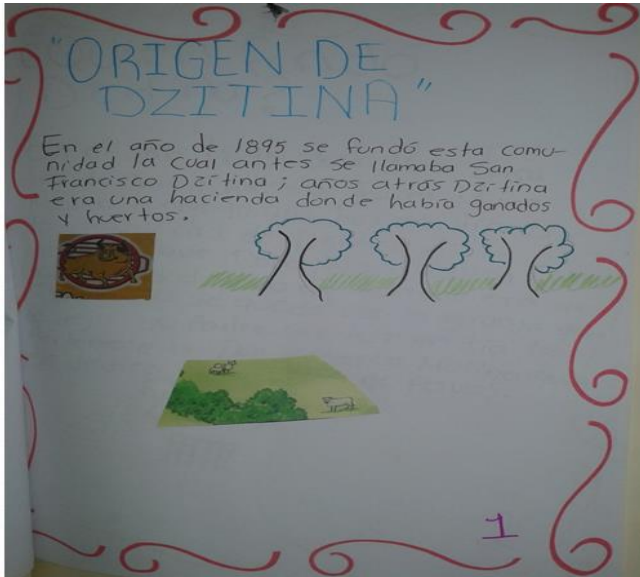 "ORIGEN DE
DZITINA"
En el año de 1895 se fundó esta comu-
nidad la cual antes se llamaba San
Francisco Dzitina; años atrás Dzitina
era una hacienda donde había ganados
y huertos.
1